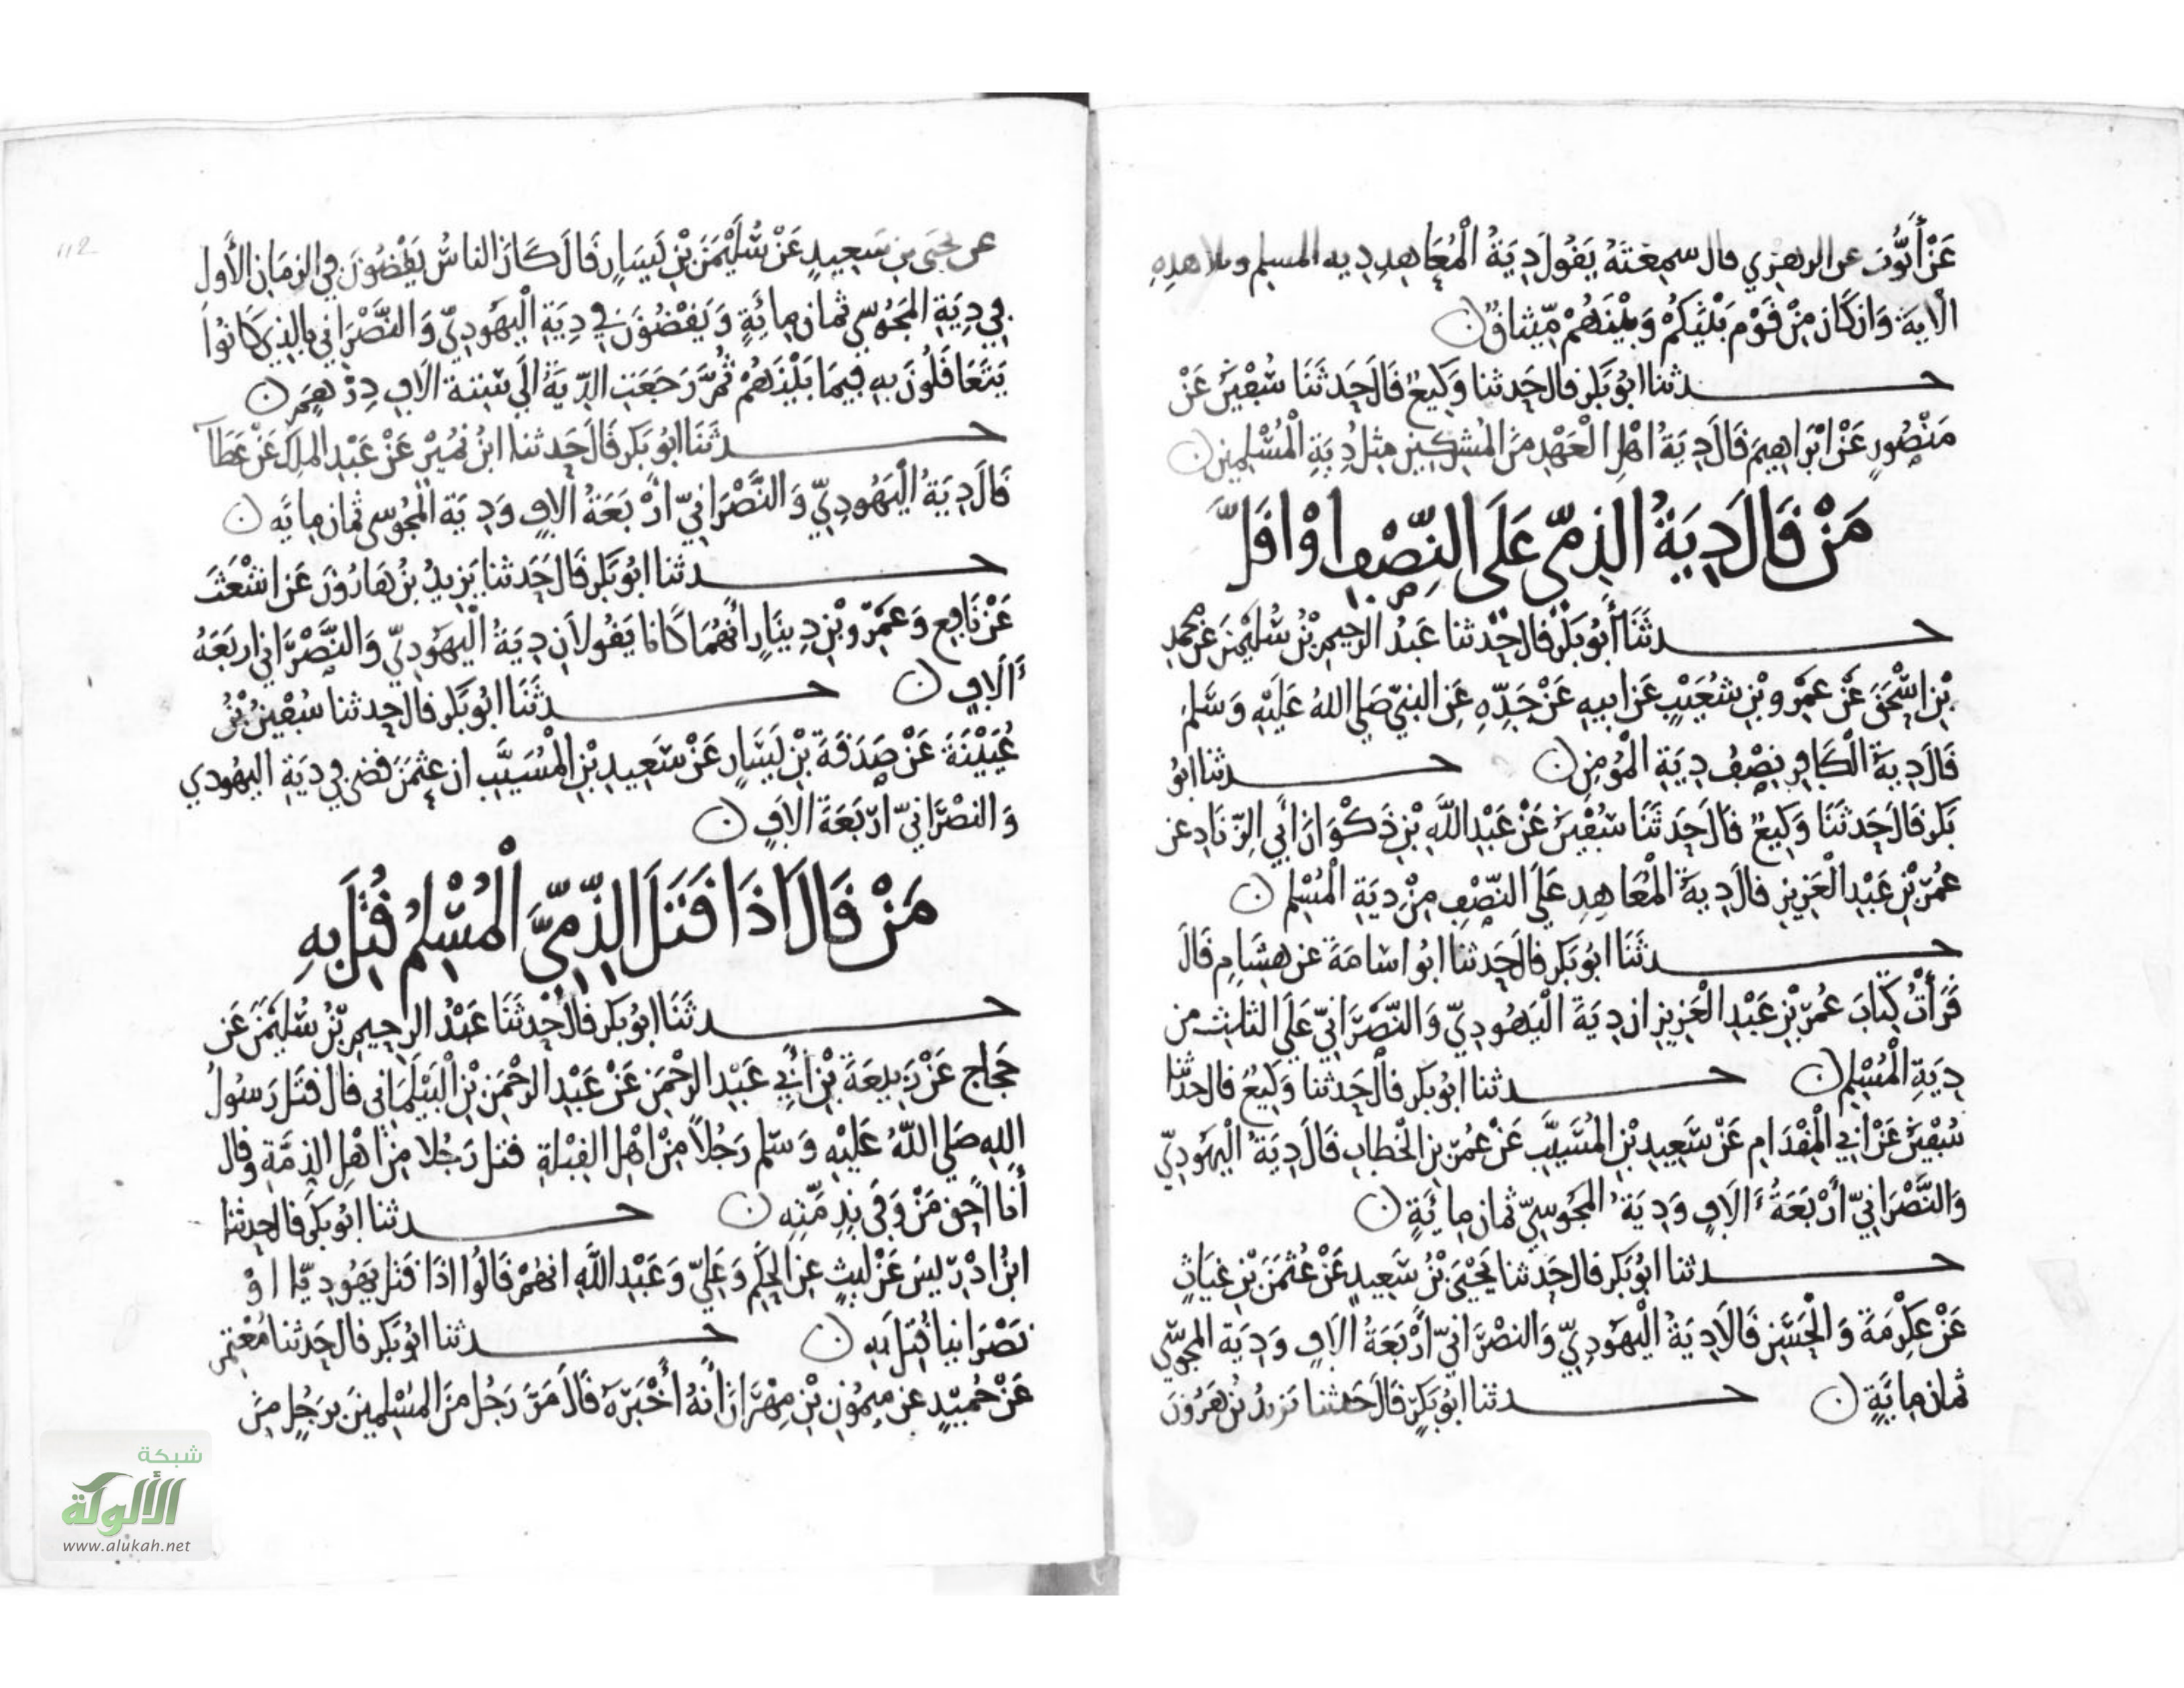 عَنْ أَيُّوبَ عن الزهري قال سمعْتَهُ يَقُولُ دِيَةُ الْمُعَاهِدِ دِيه المسلم وتلا هذِهِ
الآيَةَ وَان كَانَ مِنْ قَوْمٍ بَيْنَكُمْ وَبَيْنَهُمْ مِّيثاقٌ
حــدثنا ابُو بَكر قال حَدثنا وَكِيعٌ قَالَ حَدثَنَا سُفْيَنُ عَنْ
مَنْصُورٍ عَنْ ابْرَاهِيمَ قَالَ دِيَةُ اهْلِ الْعَهْدِ مِنَ المُشْرِكِينَ مِثلُ دِيَةِ الْمُسْلِمِينَ
مَنْ قَالَ دِيَةُ الذِمّي عَلَى النِصّْفِ اوْ اقَلَّ
حــدثَنَا أَبُو بَكْر قال حَدثنا عَبدُ الرحِيمِ بْنُ سُلَيْمَنَ عَنْ مُحمدِ
بْنِ اسْحَقَ عَنْ عَمْرِو بْنِ شُعَيْبٍ عَن ابيهِ عَنْ جَدِّهِ عَنِ النبيّ صَلى اللهُ عَلَيْهِ وَسَلم
قَالَ دِيةُ الْكَافِرِ نِصْفُ دِيَةِ الْمُؤمِنِ حــدثنا ابُو
بَكر قَالَ حَدثَنَا وَكِيعٌ قال حَدثَنَا سُفْيَنُ عَنْ عَبْدِ اللَّهِ بْنِ ذَكْوَانَ أبي الزّنَادِ عن
عُمَرَ بْنِ عَبْدِ الْعَزِيزِ قال دِيةُ الْمُعَاهِدِ عَلَى النّصْفِ مِنْ دِيَةِ الْمُسْلِم
حــدثَنَا ابُو بَكر قال حَدثنا ابُو اسَامَةَ عن هِشَامٍ قالَ
قَرَأتُ كِتَابَ عُمَرَ بْنِ عَبْدِ الْعَزِيزِ ان دِيَةَ الْيَهُودِيّ وَالنَّصْرَانِيّ عَلَى الثلثِ من
دِيَةِ الْمُسْلِم حــدثنا ابُو بَكر قال حَدثنا وَكِيعٌ قال حدثنا
سُفْيَنُ عَنْ أبي المِقْدَامِ عَنْ سَعِيدِ بْنِ المُسَيَّبِ عَنْ عُمَرَ بنِ الخَطابِ قَالَ دِيَةُ الْيَهُودِيّ
وَالنَّصْرَانِيّ أرْبَعَةُ ءَالَافٍ وَدِيَةُ المَجُوسِيّ ثمانِ مِائَةٍ
حــدثنا ابُو بَكر قال حَدثنا يَحْيَى بْنُ سَعِيدٍ عَنْ عُثمَنَ بْنِ غِيَاثٍ
عَنْ عِكْرِمَةَ وَالْحَسَنِ قَالَا دِيَةُ الْيَهُودِيّ وَالنصْرَانِيّ أرْبَعَةُ الَافٍ وَدِيَة المجُوسّي
ثمان مِايَةٍ حــدثنا ابُو بَكرٍ قَالَ حَدثنا يَزيدُ بْنُ هَرُونَ
عن يحيَى بنِ سَعِيدٍ عَنْ سُلَيْمَنَ بْنِ يَسَارٍ قَالَ كَانَ الناسُ يَقْضُونَ في الزمَانِ الأَول
في دِيَةِ المَجُوسّي ثمان مِائَةٍ وَيَقْضُونَ في دِيَةِ الْيَهُودِيّ وَالنَّصْرَاني بالذِي كَانُوا
يَتَعَاقَلُونَ بِهِ فِيمَا بَيْنَهُمْ ثُمَّ رَجَعَتِ الدّيَةُ الَى سِتة الَافِ دِرْهَمٍ
حــدثَنَا ابُو بَكر قَالَ حَدثنا ابنُ نُمَيْرٍ عَنْ عَبْدِ الملِكِ عَنْ عَطَآ
قَالَ دِيَةُ الْيَهُودِيّ وَالنَّصْرَانِيّ ارْبَعَةُ الَافٍ وَدِيَة المجُوسي ثمان مِايَه
حــدثنا ابُو بَكر قَالَ حَدثنا يَزِيدُ بْنُ هَارُونَ عَن اشْعَثَ
عَنْ نَافِعٍ وَعَمْرِو بْنِ دِينَارٍ أنَّهُمَا كَانا يَقُولانِ دِيَةُ الْيَهُودِيّ وَالنَّصْرَاني اربَعَةُ
ءَالَافٍ حــدثَنَا ابُو بَكر قال حَدثنا سُفْيَنُ بْنُ
عُيَيْنَةَ عَنْ صَدَقَةَ بْنِ يَسَارٍ عَنْ سَعِيدِ بْنِ الْمُسَيَّبِ ان عُثمَنَ قضى في ديَةِ اليهُودي
وَالنصْرَانيّ ارْبَعَةَ الَافٍ
مَنْ قَالَ اذَا قَتَلَ الذِّمِّيَّ الْمُسْلِمُ قُتِلَ بِهِ
حــدثَنَا ابُو بَكر قال حَدثَنَا عَبْدُ الرحِيمِ بْنُ سُلَيْمَنَ عَن
حَجاجٍ عَنْ رَبِيعَةَ بْنِ أَبِي عَبْدِ الرحْمَنِ عَنْ عَبْدِ الرحْمَنِ بْنِ الْبَيْلَمَاني قال قتَل رَسُولُ
اللهِ صَلى اللَّهُ عَلَيْهِ وَسَلم رَجُلاً مِنْ اهْلِ القِبْلةِ قتل رَجُلا مِنْ اهْلِ الذِمَّةِ وقال
أنا احَق مَنْ وَفَى بِذِمَّتِهِ حــدثنا ابُو بَكر قال حدثنا
ابنُ ادْرِيسَ عَنْ ليثٍ عَنِ الحَكَمِ وَعَلِيّ وَعَبْدِ اللَّهِ انهُمْ قَالُوا اذَا قَتَل يَهُودِيّا اوْ
نَصْرَانيا قُتِلَ بهِ حــدثنا ابُو بَكر قال حَدثنا مُعْتمِر
عَنْ حُمَيْدٍ عن مَيمُونِ بْنِ مِهْرَانَ أنهُ أخْبَرَهُ قَالَ مَرَّ رَجُل مِنَ المُسْلِمِينَ برَجُلٍ مِنَ
112
شبكة
الألوكة
www.alukah.net